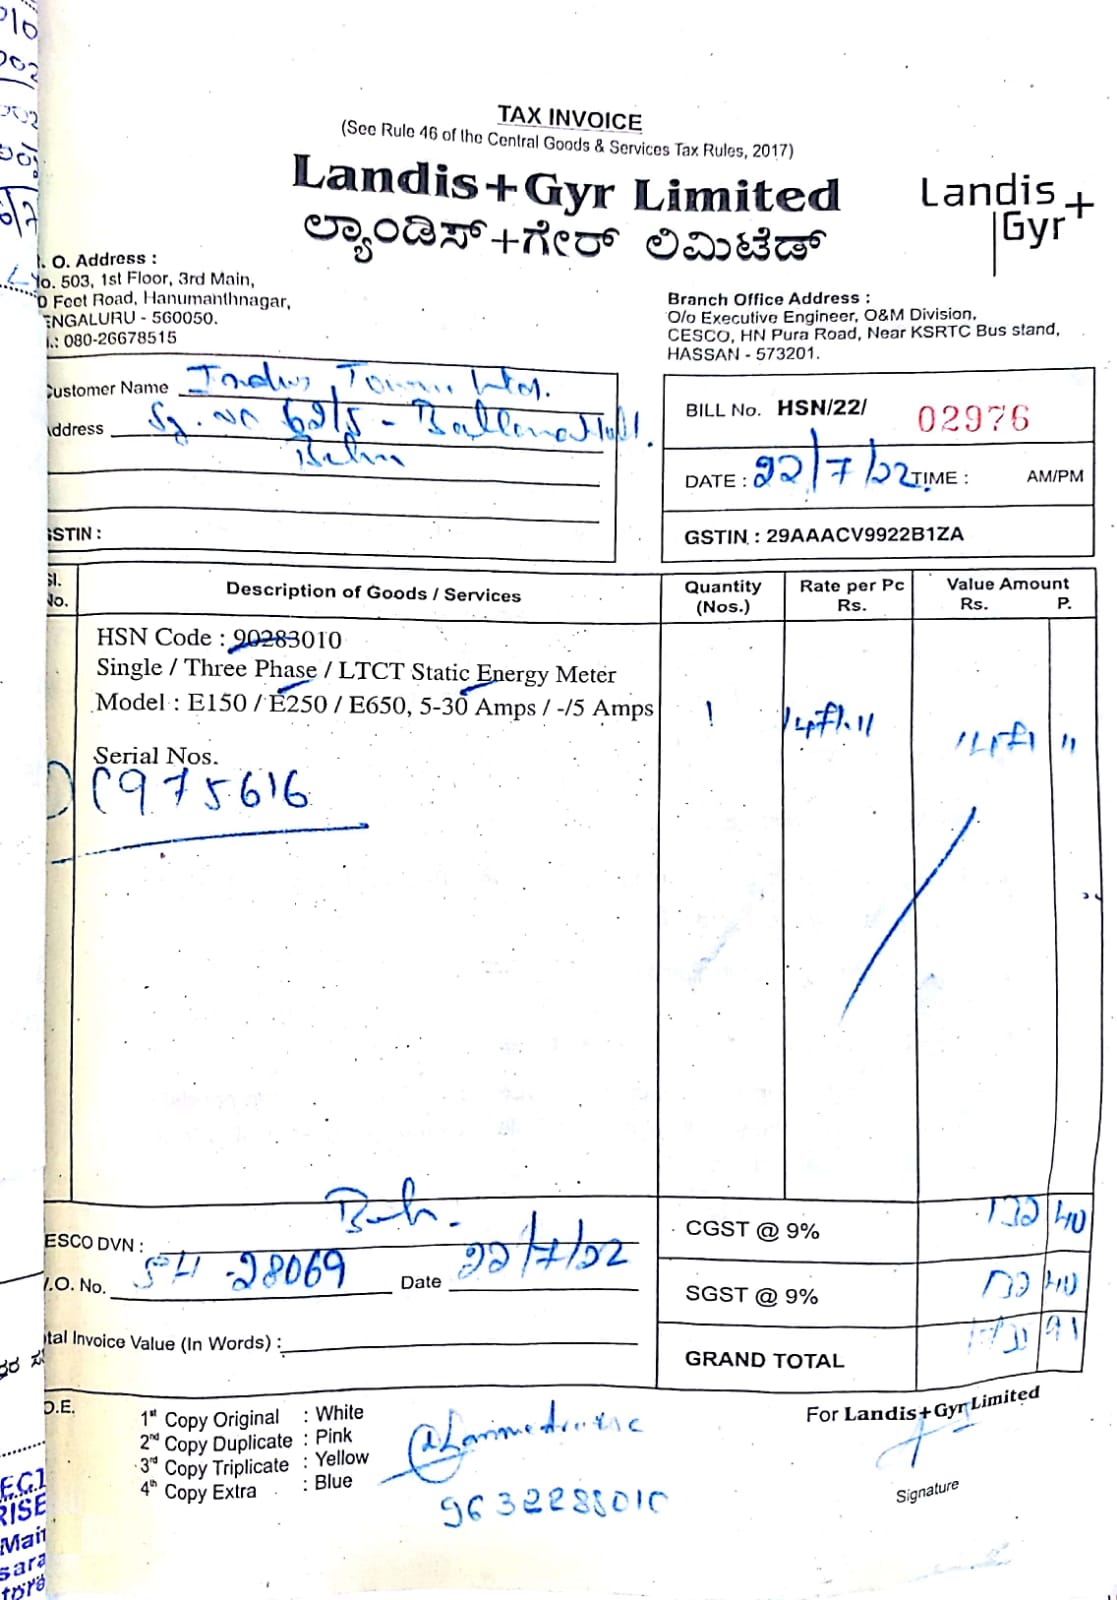 TAX INVOICE
(See Rule 46 of the Central Goods & Services Tax Rules, 2017)
Landis+Gyr Limited
ಲ್ಯಾಂಡಿಸ್+ಗೇರ್ ಲಿಮಿಟೆಡ್
Landis+
Gyr
. O. Address :
o. 503, 1st Floor, 3rd Main,
0 Feet Road, Hanumanthnagar,
ENGALURU - 560050.
.: 080-26678515
Branch Office Address :
O/o Executive Engineer, O&M Division,
CESCO, HN Pura Road, Near KSRTC Bus stand,
HASSAN - 573201.
ustomer Name Indus
ddress Sy. No 62/5 -
STIN :
BILL No. HSN/22/ 02976
DATE : 22/7/22 TIME : AM/PM
GSTIN : 29AAACV9922B1ZA
Sl. No. Description of Goods / Services Quantity (Nos.) Rate per Pc Rs. Value Amount Rs. P.
HSN Code : 90283010
Single / Three Phase / LTCT Static Energy Meter
Model : E150 / E250 / E650, 5-30 Amps / -/5 Amps 1
Serial Nos.
975616
ESCO DVN :
CGST @ 9% 132 40
.O. No. 28069 Date 22/7/22
SGST @ 9% 132 40
tal Invoice Value (In Words) :
GRAND TOTAL
O.E.
1st Copy Original : White
2nd Copy Duplicate : Pink
3rd Copy Triplicate : Yellow
4th Copy Extra : Blue
For Landis+Gyr Limited
Signature